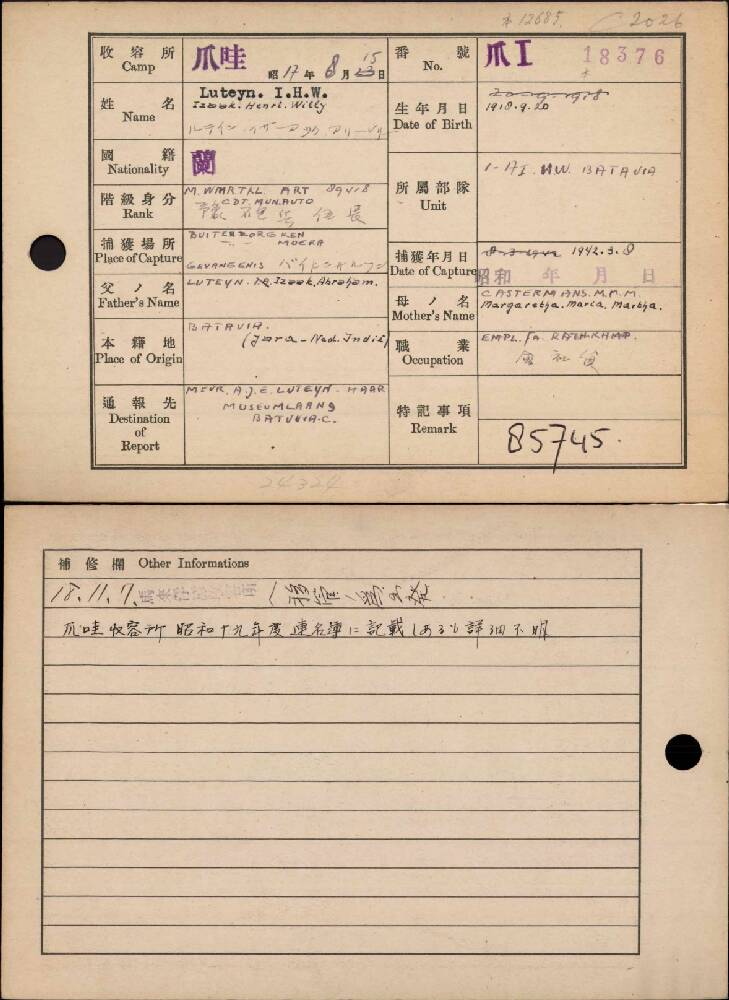 12685. 2026
收容所 Camp 爪哇 昭17年8月15日
番號 No. 爪I 18376
姓名 Name Luteyn. I.H.W.
Izaak. Henri. Willy
生年月日 Date of Birth 20-9-1918
1918.9.20
國籍 Nationality 蘭
階級身分 Rank M. WMRTRL. ART 89418
CDT. MUN. AUTO
所屬部隊 Unit 1-A I. H.W. BATAVIA
捕獲場所 Place of Capture BUITENZORG KEN
MOEARA
GEVANGENIS
捕獲年月日 Date of Capture 8-3-1942 1942.3.8
昭和 年 月 日
父ノ名 Father's Name LUTEYN. Izaak. Abraham.
母ノ名 Mother's Name CASTERMANS. M.M.M.
Margaretha. Maria. Martha.
本籍地 Place of Origin BATAVIA.
(Java - Ned. Indië)
職業 Occupation EMPL. Fa. RATHKAMP.
會社員
通報先 Destination of Report MEVR. A.J.E. LUTEYN - HAAR
MUSEUMLAAN 9
BATAVIA.C.
特記事項 Remark 85745.
24324
補修欄 Other Informations
18.11.7.
爪哇收容所 昭和十九年度 連名簿ニ記載シあるも詳細不明